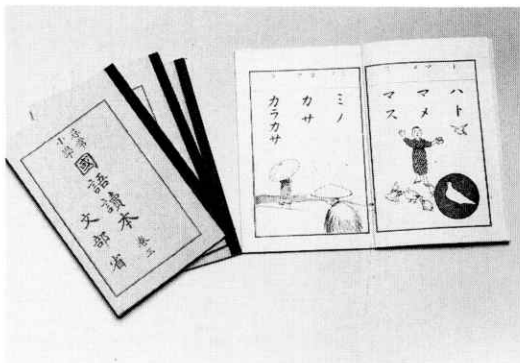 尋常
小學
國語讀本 卷三
文部省
ハト
マメ
マス
ミノ
カサ
カラカサ